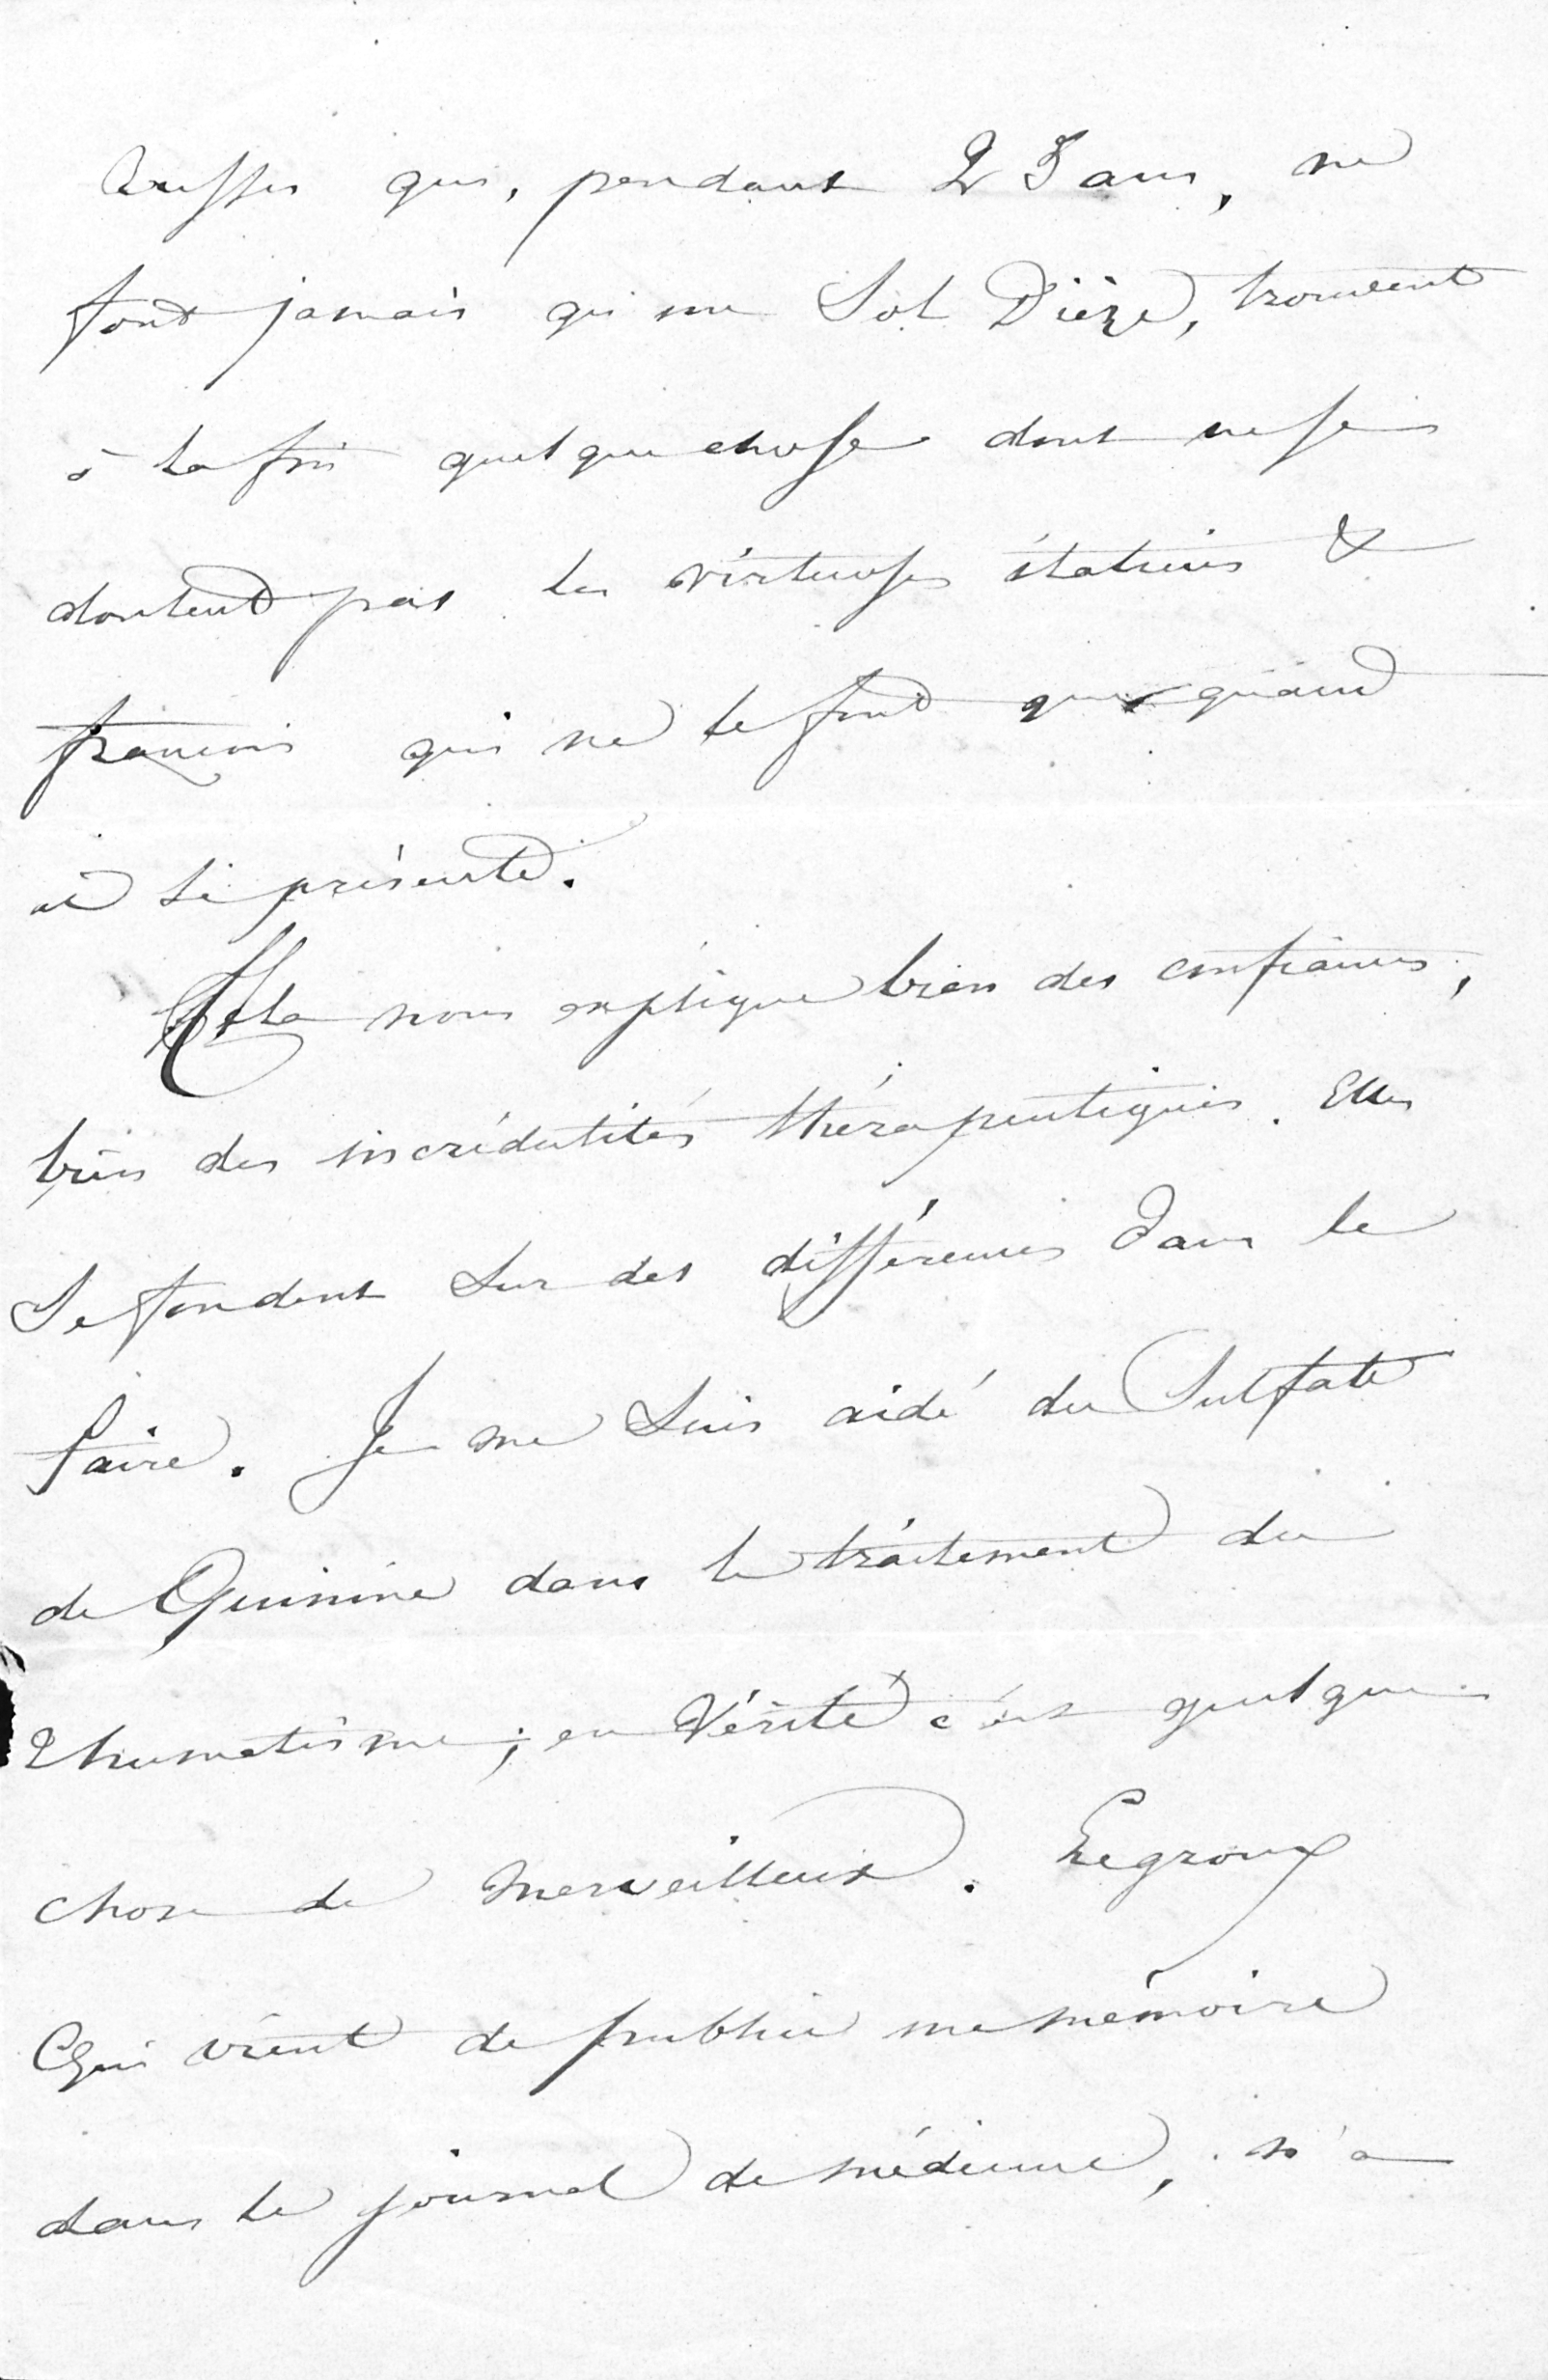 Russes qui, pendant 25 ans, ne
font jamais qu'un Sol Dièze, trouvent
à la fin quelque chose dont ne se
doutent pas les virtuoses italiens &
français qui ne le font que quand
il se présente.
Cela nous explique bien des confiances,
bien des incrédulités thérapeutiques. Elles
se fondent sur des différences dans le
faire. Je me suis aidé du Sulfate
de Quinine dans le traitement du
rhumatisme; en Vérité c'est quelque
chose de merveilleux. Legroux
Qui vient de publier un mémoire
dans le journal de médecine, n'a